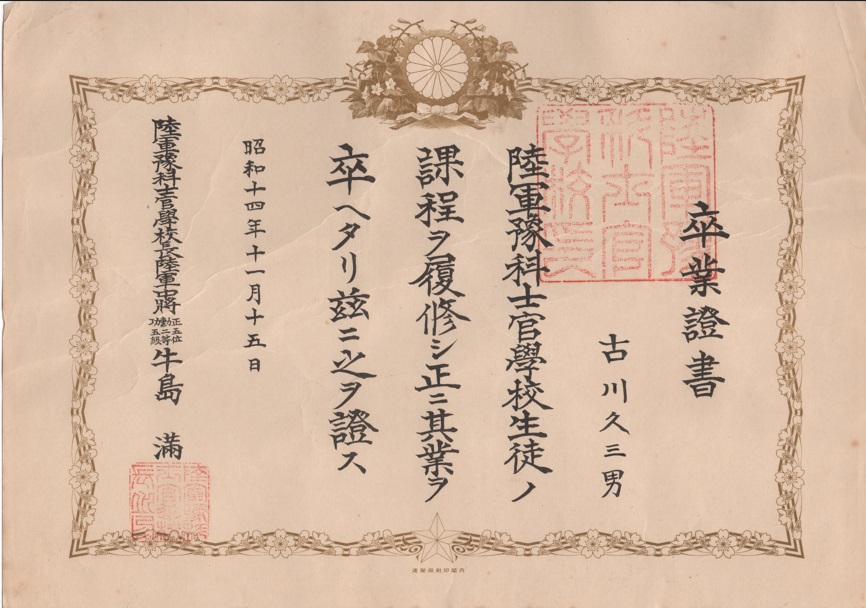 卒業證書
古川久三男
陸軍豫科士官學校生徒ノ
課程ヲ履修シ正ニ其業ヲ
卒ヘタリ茲ニ之ヲ證ス
昭和十四年十一月十五日
陸軍豫科士官學校長陸軍中將正五位勳二等功五級牛島 滿
陸軍豫
科士官
學校長
內閣印刷局製造